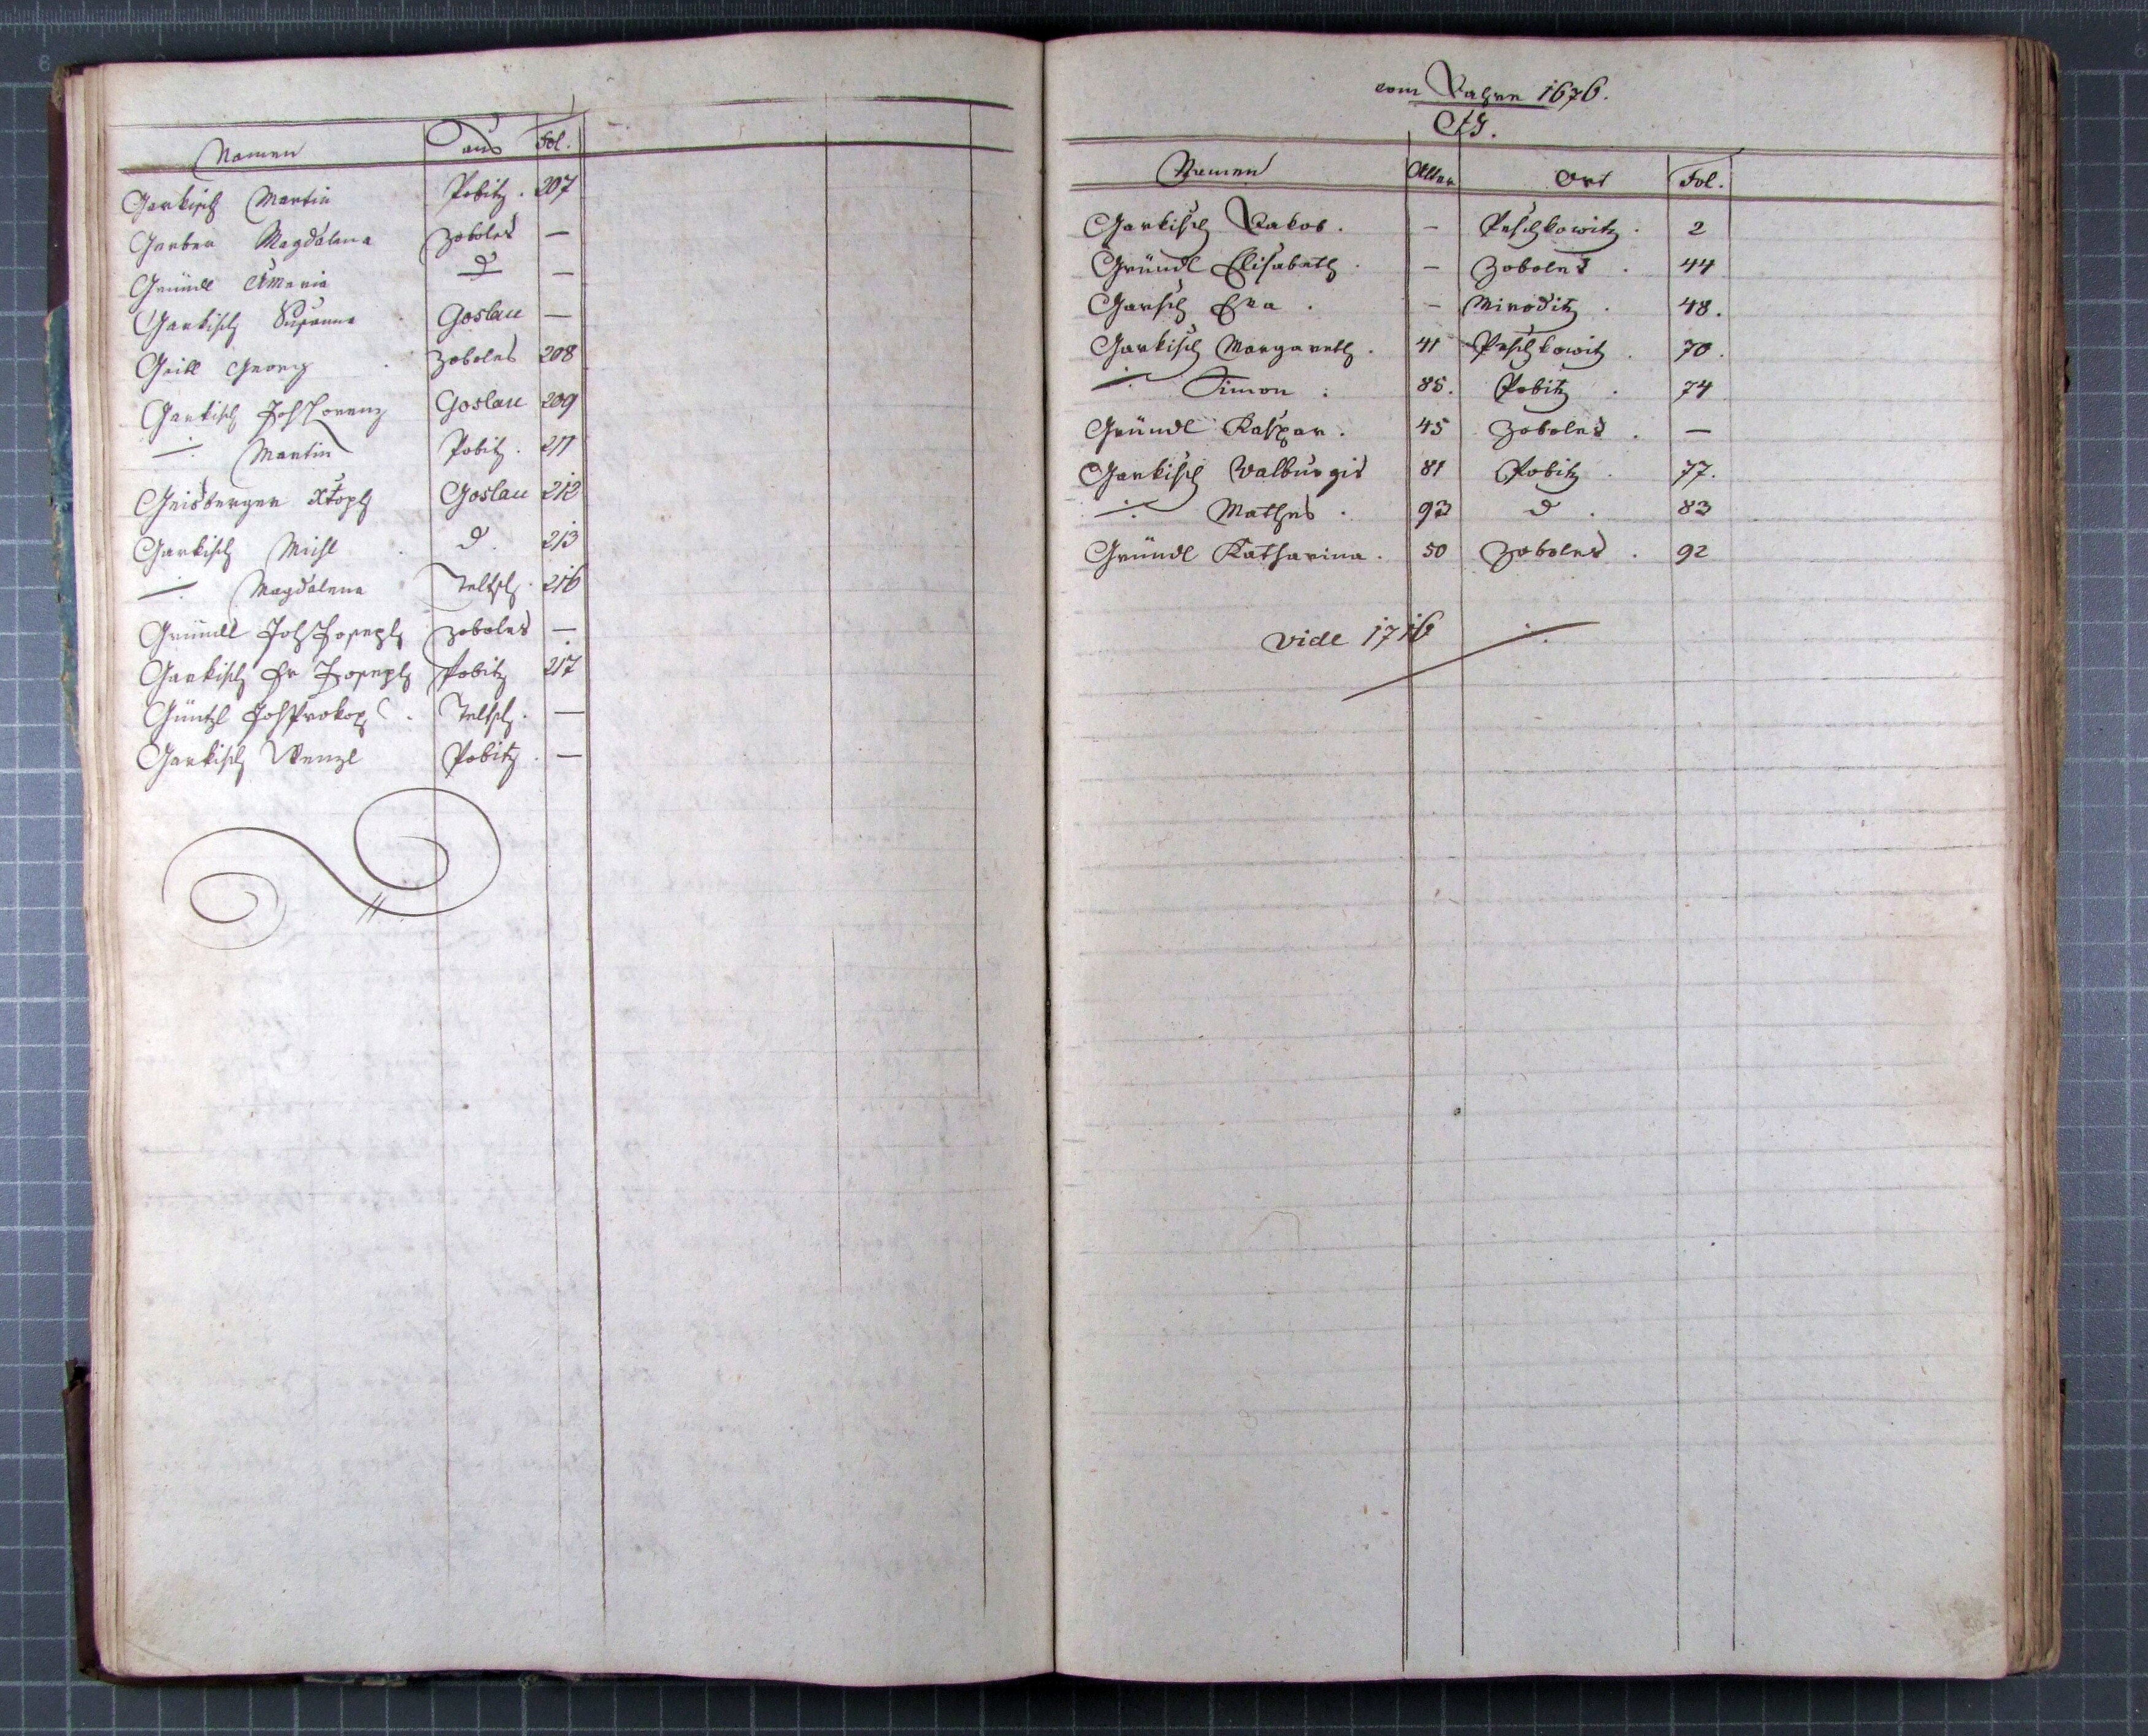 Namen aus Fol.
Garkisch Martin Pobitz. 207
Gerber Magdalena Zoboles —
Gründl AMaria d —
Garkisch Susanna Goslau —
Georg Zoboles 208
Garkisch Joh Lorenz Goslau 209
—:— Martin Pobitz. 211
Geisberger Xstoph Goslau 212
Garkisch Michl d. 213
—:— Magdalena Teltsch. 216
Gründl Joh Joseph Zoboles —
Garkisch Fr Joseph Pobitz 217
Güntzl Joh Prokop. Teltsch. —
Garkisch Wenzl Pobitz. —
vom Jahre 1676.
G.
Namen Alter Ort Fol.
Garkisch Jakob. — Peschkowitz. 2
Gründl Elisabeth. — Zoboles. 44
Garsch Eva. — Miroditz. 48.
Garkisch Margareth. 41 Peschkowitz. 70.
—:— Simon. 85. Pobitz. 74
Gründl Kaspar. 45 Zoboles. —
Garkisch Walburgis 81 Pobitz. 77.
—:— Mathes. 93 d. 83
Gründl Katharina. 50 Zoboles. 92
vide 1716 ·/.